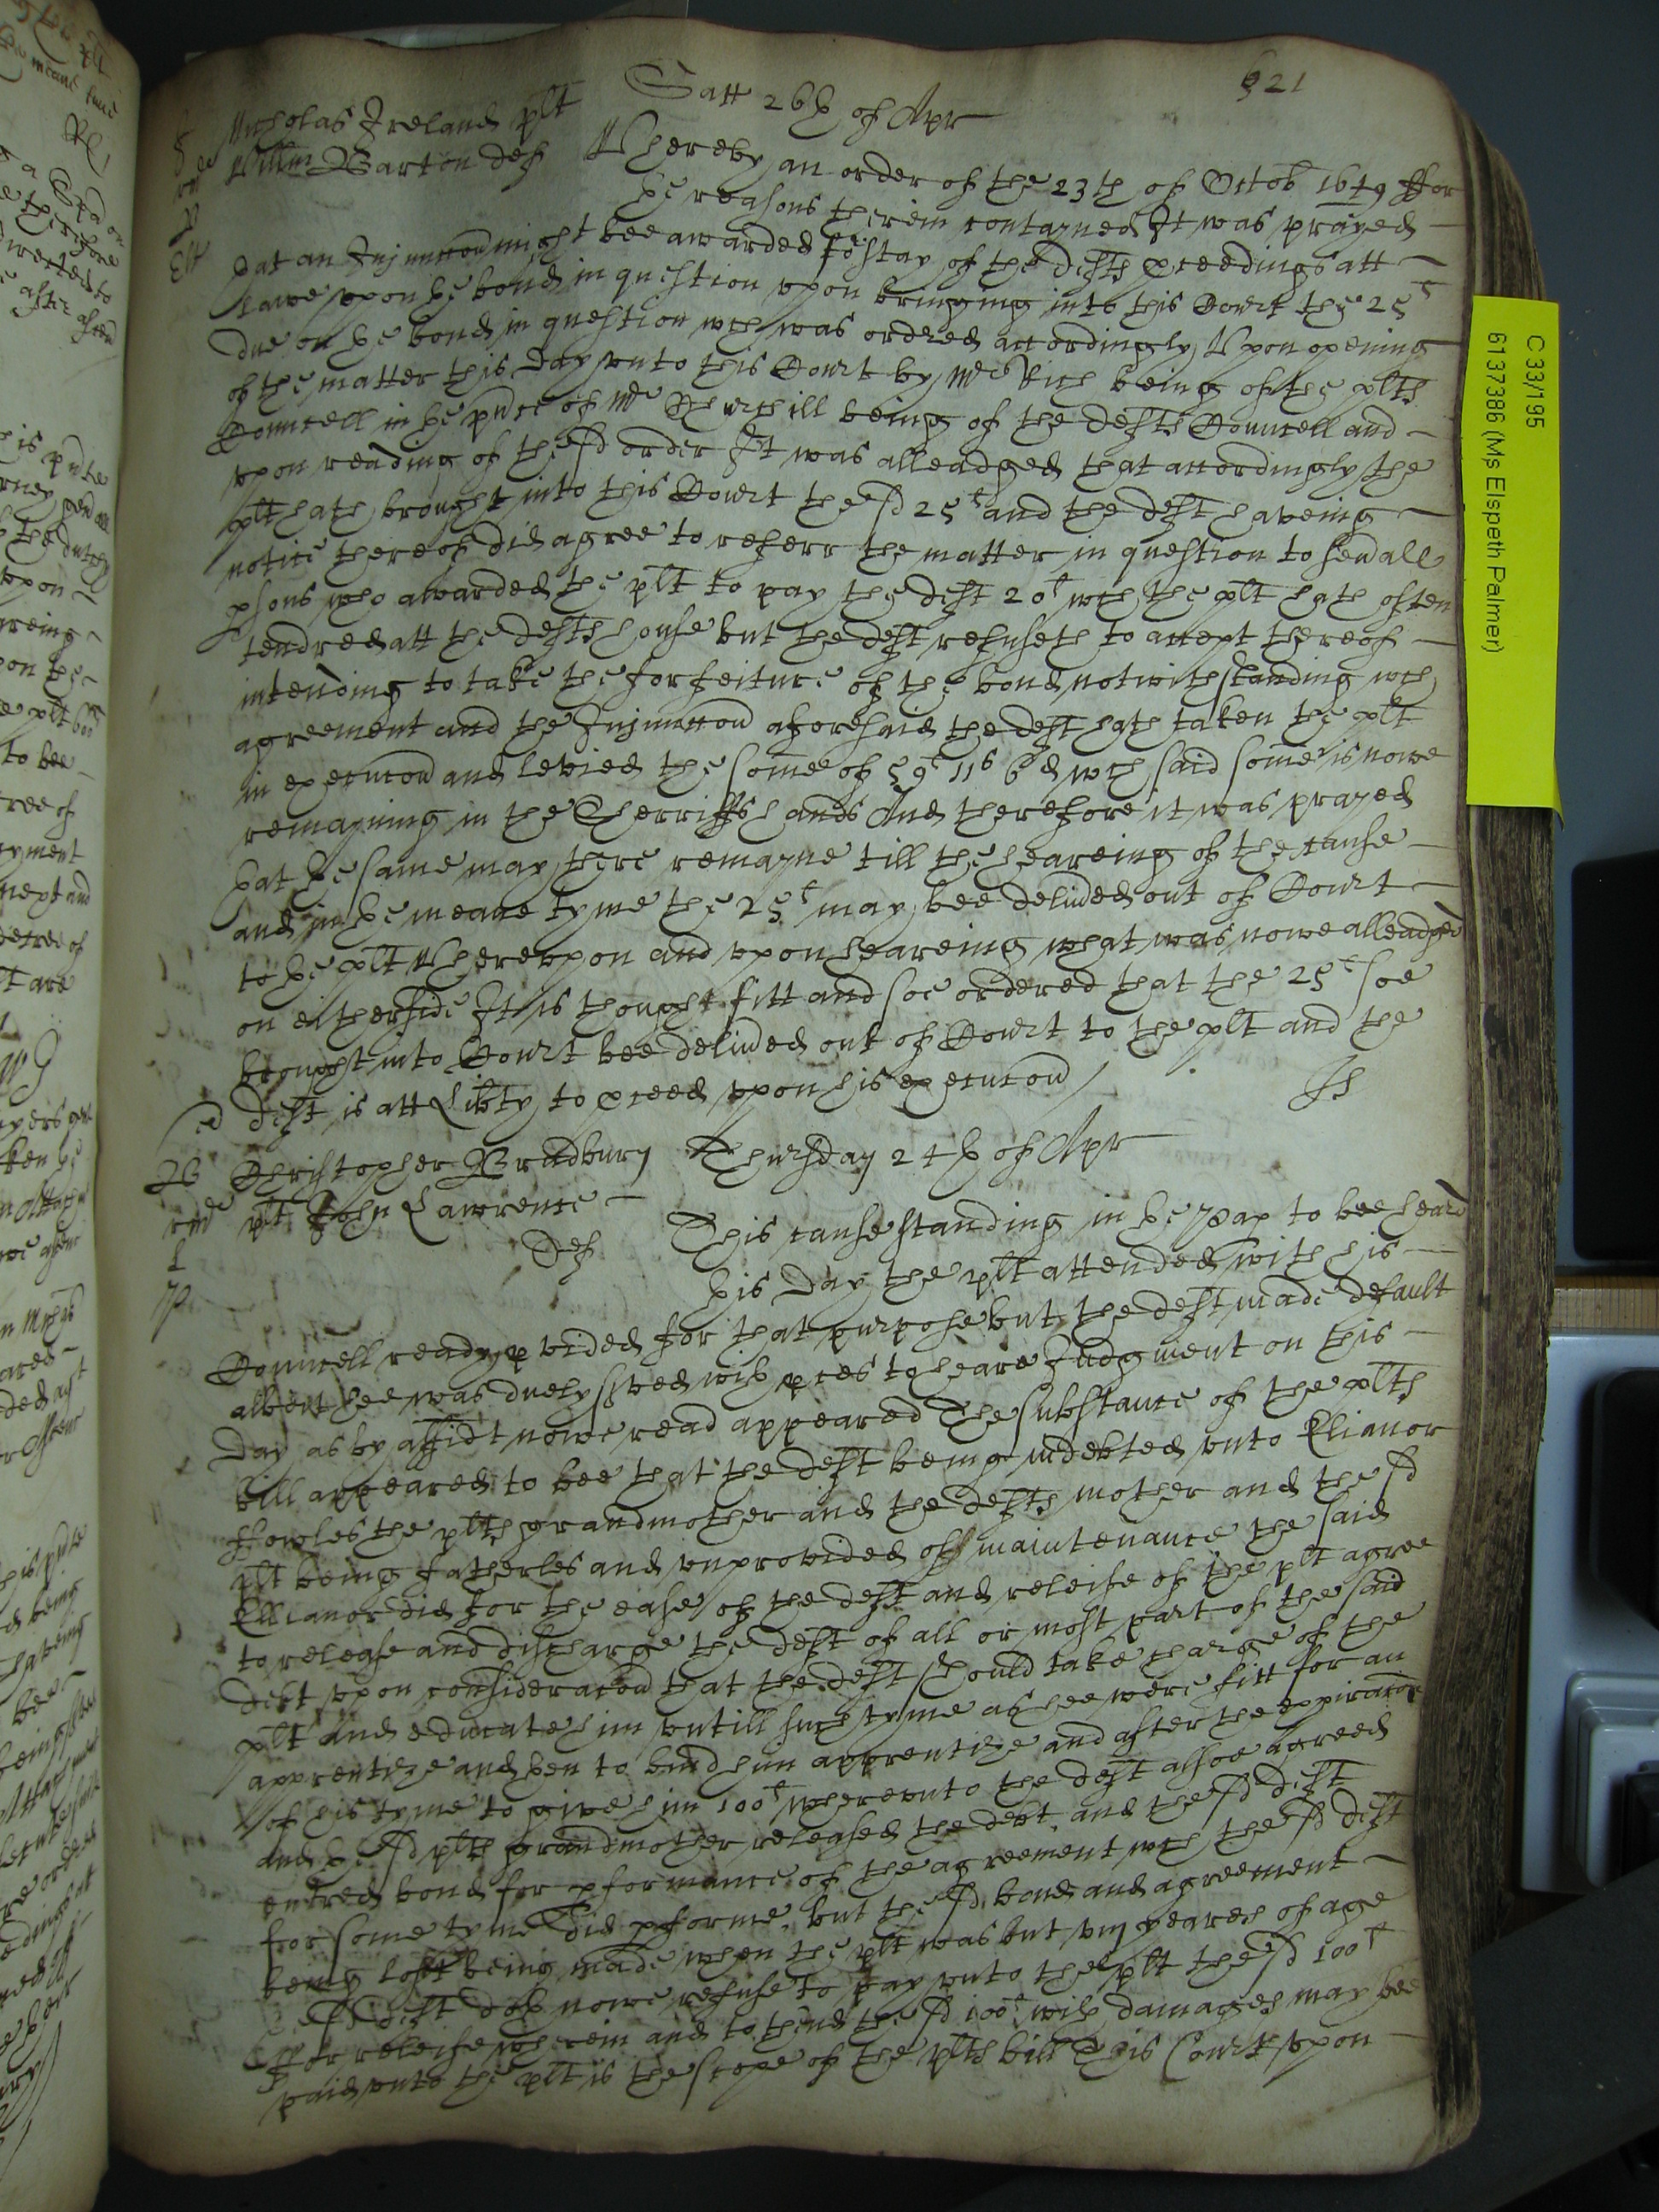 621
Satt 26th of Apr
Nicholas Ireland plt
Willm Barton deft Whereby an order of the 23th of Octob 1649 ffor
the reasons therein contayned It was prayed
that an Injunccon might bee awarded for stay of the defts pceedings att
Lawe vpon the bond in question vpon bringing into this Court the 25l
due on the bond in question wch was ordred accordingly, Vpon opening
of the matter this day vnto this Court by Mr Rich being of the plts
Councell in the pnce of Mr Churchill being of the defts Councell and
vpon reading of the sd order It was alleadged that accordingly the
plt hath brought into this Court the sd 25l and the deft haveing
notice thereof did agree to referr the matter in question to seuall
psons who awarded the plt to pay the deft 20l wch the plt hath often
tendred att the defts house but the deft refuseth to accept thereof
intending to take the forfeiture of the bond notwithstanding wch
agreement and the Injunccon aforesaid the deft hath taken the plt
in execucon and levied the some of 59l 11s 6d wch said some is nowe
remayning in the Sherriffs hands And therefore it was prayed
that the same may there remayne till the heareing of the cause
and in the meane tyme the 25l may bee deliued out of Court
to the plt Wherevpon and vpon heareing what was nowe alleadged
on either side It is thought fitt and soe ordered that the 25l soe
brought into Court bee deliued out of Court to the plt and the
deft is att Libty to pceed vpon his execucon
Christopher Bradbury Thursday 24th of Apr
plt John Lawrence
Def This cause standing in the pap to bee heard
this day the plt attended with his
Councell ready pvided for that purpose but the deft made default
albeit hee was duely served with pces to heare Judgment on this
day as by affidt nowe read appeared The substance of the plts
bill appeared to bee that the deft being indebted vnto Elianor
ffowles the plts grandmother and the defts mother and the sd
plt being fatherles and vnprovided of maintenance the said
Ellianor did for the ease of the deft and releife of the plt agree
to release and discharge the deft of all or most part of the said
debt vpon consideracon that the deft should take charge of the
plt and educate him vntill such tyme as hee were fitt for an
apprentize and then to bind him apprentize and after the expiracon
of his tyme to give him 100l wherevnto the deft alsoe agreed
and the sd plts grandmother released the debt and the sd deft
entred bond for pformance of the agreement wch the sd deft
for some tyme did pforme, but the sd bond and agreement
being lost being made when the plt was but vij yeares of age
sd deft doth nowe refuse to pay vnto the plt the sd 100l
ffor releife wherein and to the end the sd 100l with damages may bee
paid vnto the plt is the scope of the plts bill This Court vpon
C 33/195
6137386 (Ms Elspeth Palmer)